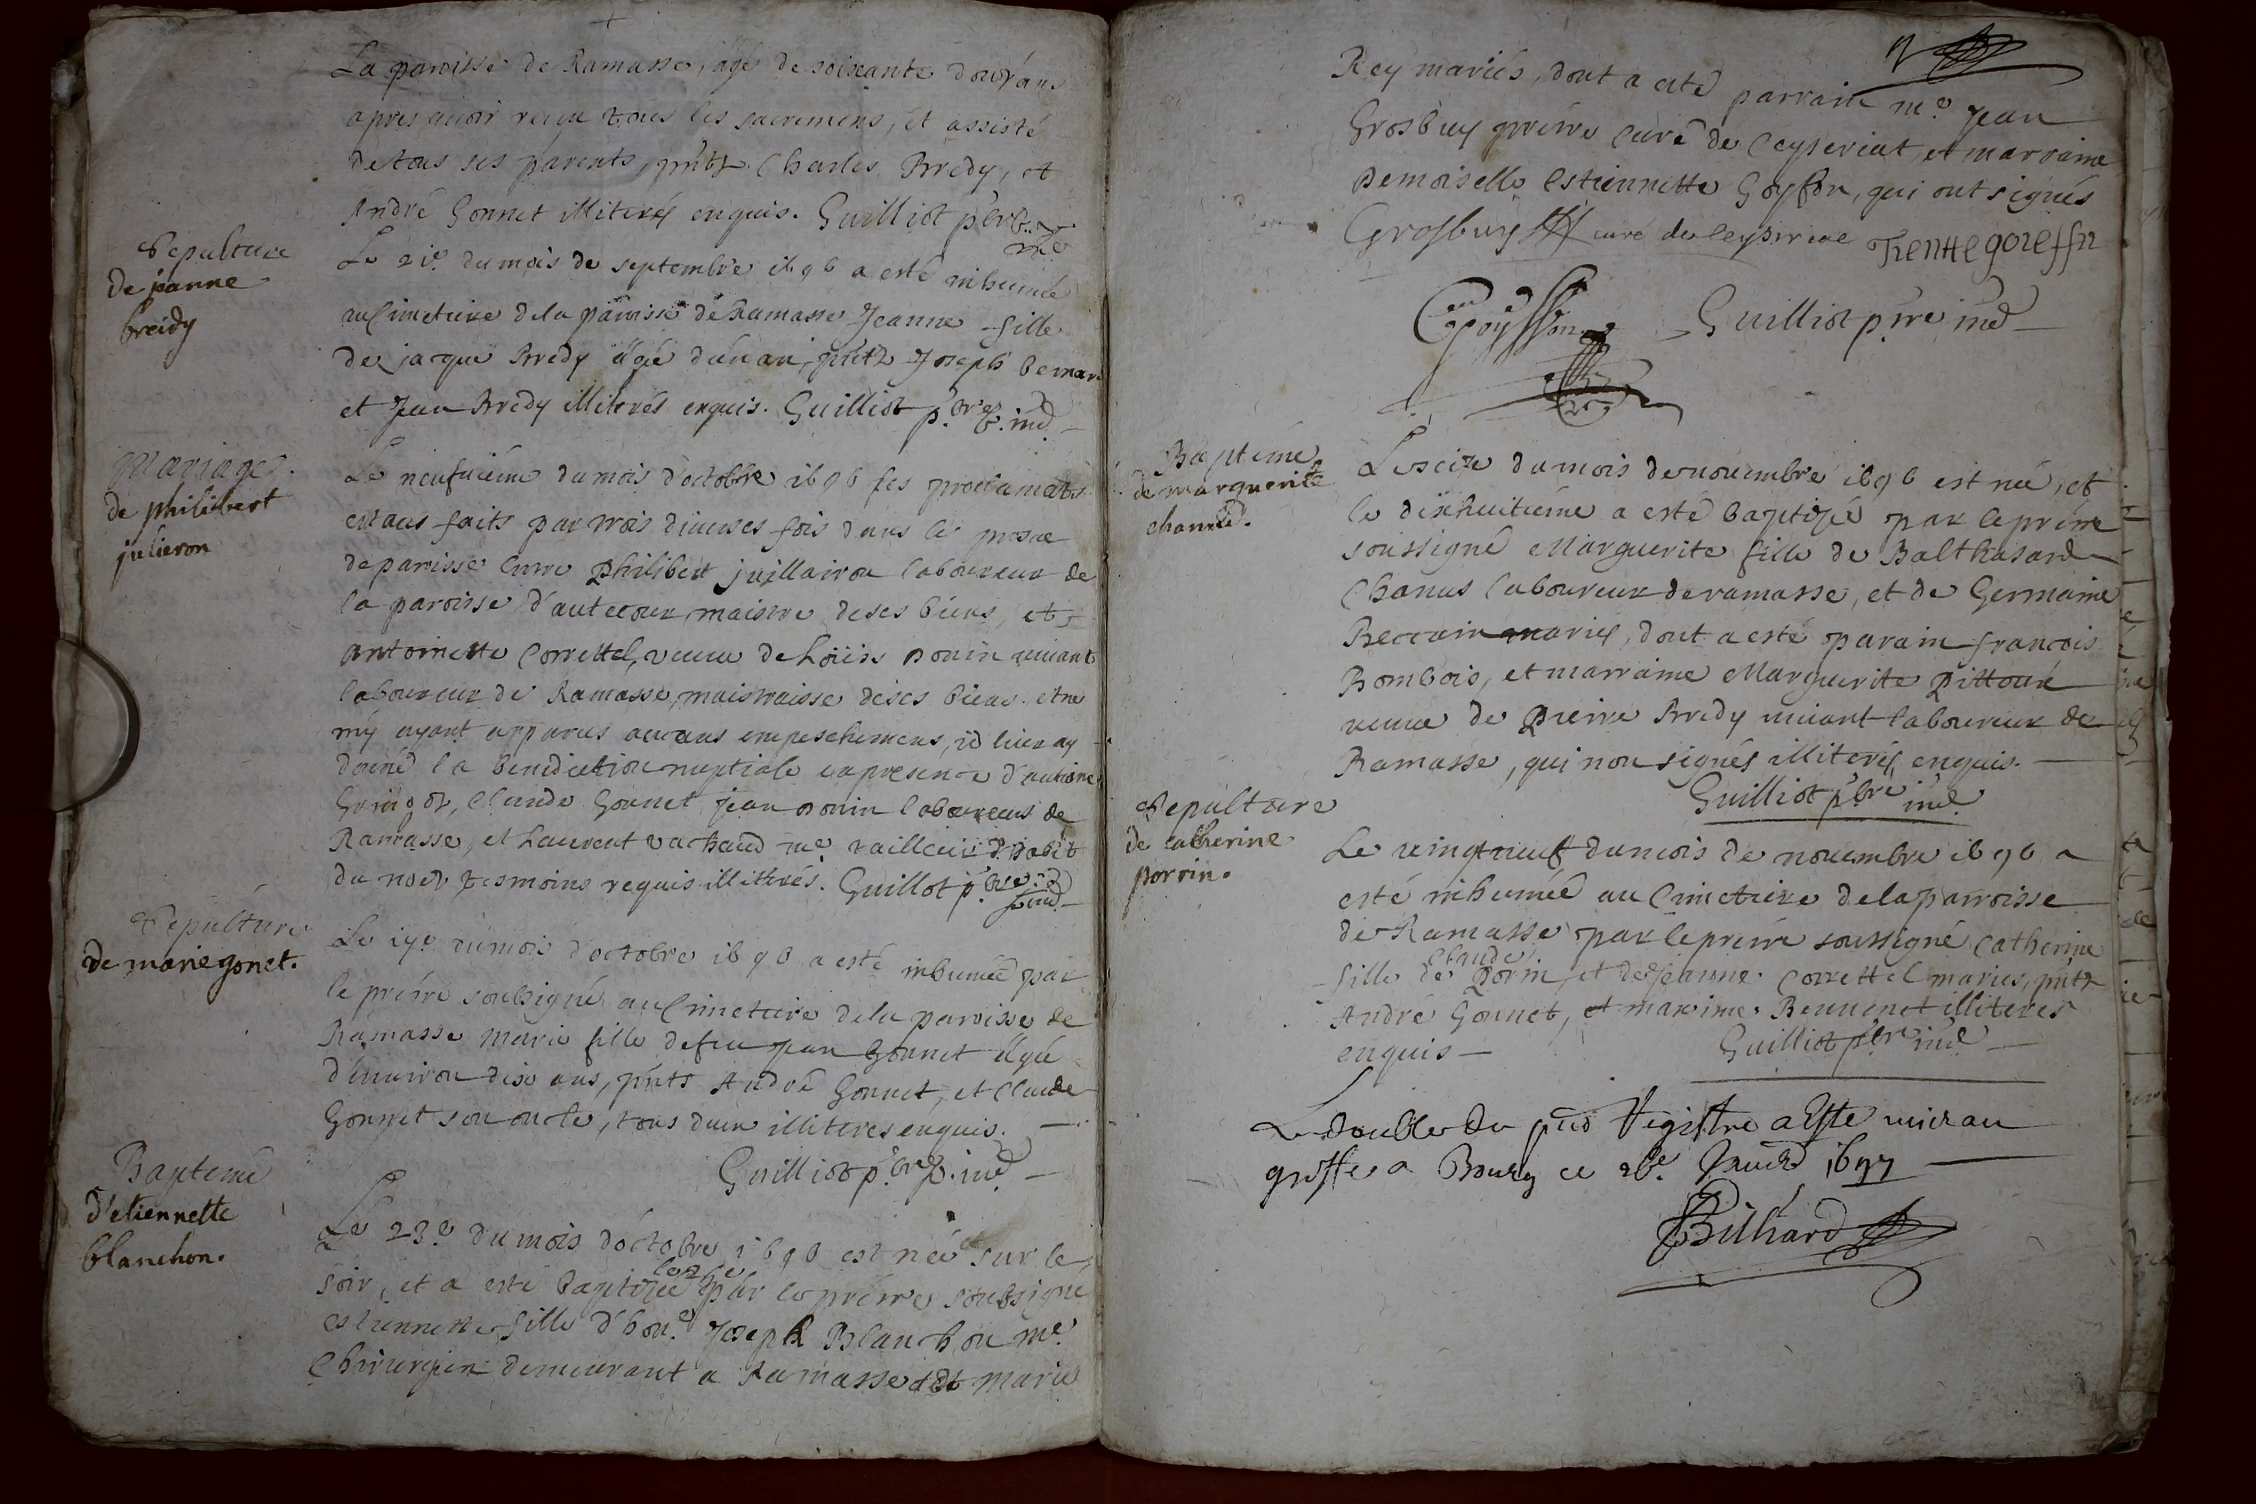 La paroisse de Ramasse, âgé de soixante douz ans
apres avoir reçu tous les sacremens, et assisté
de tous ses parents, pnts Charles Bredy, et
André Gonnet illiterés enquis. Guilliot pbre
Sepulture
de jeanne
breidy
Le 21e du mois de septembre 1696 a esté inhumée
au Cimetiere de la paroisse de Ramasse Jeanne fille
de jacque Bredy âgé d'un an, pnts Joseph bernard
et Jean Bredy illiterés enquis. Guilliot pbre ind
Mariages
de philibert
julieron
Le neufuiéme du mois d'octobre 1696 les proclamats
estans faits par trois diverses fois dans le prosne
de paroisse entre Philibert juillairon laboureur de
la paroisse d'autecour maistre de ses biens, et
Antoinette Correttel, veuve de Loüis Donin vivant
laboureur de Ramasse, maistraisse de ses biens. et ne
m'y ayant apparus aucuns empeschemens, je leur ay
donné la benediction nuptiale en presence d'antoine
Gringoz, Claude Gonnet, jean Donin laboureurs de
Ramasse, et Laurent vachaud me tailleur d'habit
du tesmoins requis illitérés. Guilliot pbre ind
Sepulture
de marie gonet.
Le 17e du mois d'octobre 1696 a esté inhumée par
le prétre soubsigné au Cimetiere de la paroisse de
Ramasse Marie fille de feu jean Gonnet âgé
d'environ dix ans, pnts André Gonnet, et Claude
Gonnet son oncle, tous deux illiteres enquis.
Guilliot pbre ind
Bapteme
d'etiennette
blanchon.
Le 23e du mois d'octobre 1696 est née sur le
soir, et a esté baptizée par le prétre soubsigné
estiennette fille d'hon. Joseph Blanchon me
Chirurgien demeurant a Ramasse et Marie
Rey mariés, dont a esté parrain me Jean
Grosbuy prétre curé de Ceyseriat, et marraine
Demoiselle Estiennette Goyffon, qui ont signés
Grosbuy curé de Ceyseriat Tienette goieffn
Guilliot pbre ind
Baptéme
de marguerite
chanud.
Le seize du mois de nouembre 1696 est née, et
le dixhuitiéme a esté baptizé par le prétre
soussigné Marguerite fille de Balthasard
Chanus laboureur de ramasse, et de Germaine
mariés, dont a esté parain françois
Bombois, et marraine Marguerite Pittoux
veuve de Pierre Bredy vivant laboureur de
Ramasse, qui non signés illiterés enquis.
Guilliot pbre ind
Sepulture
de catherine
porrin.
Le vingtneuf du mois de nouembre 1696 a
esté inhumée au Cimetiere de la parroisse
de Ramasse par le prétre soussigné Catherine
fille de Claude Porin, et de jeanne Correttel mariés, pnts
André Gonnet, et maxime Bennenet illiteres
enquis
Guilliot pbre ind
Le double du pnt registre a esté mis au
greffe a Bourg ce 26e Janvr 1697
Billiard